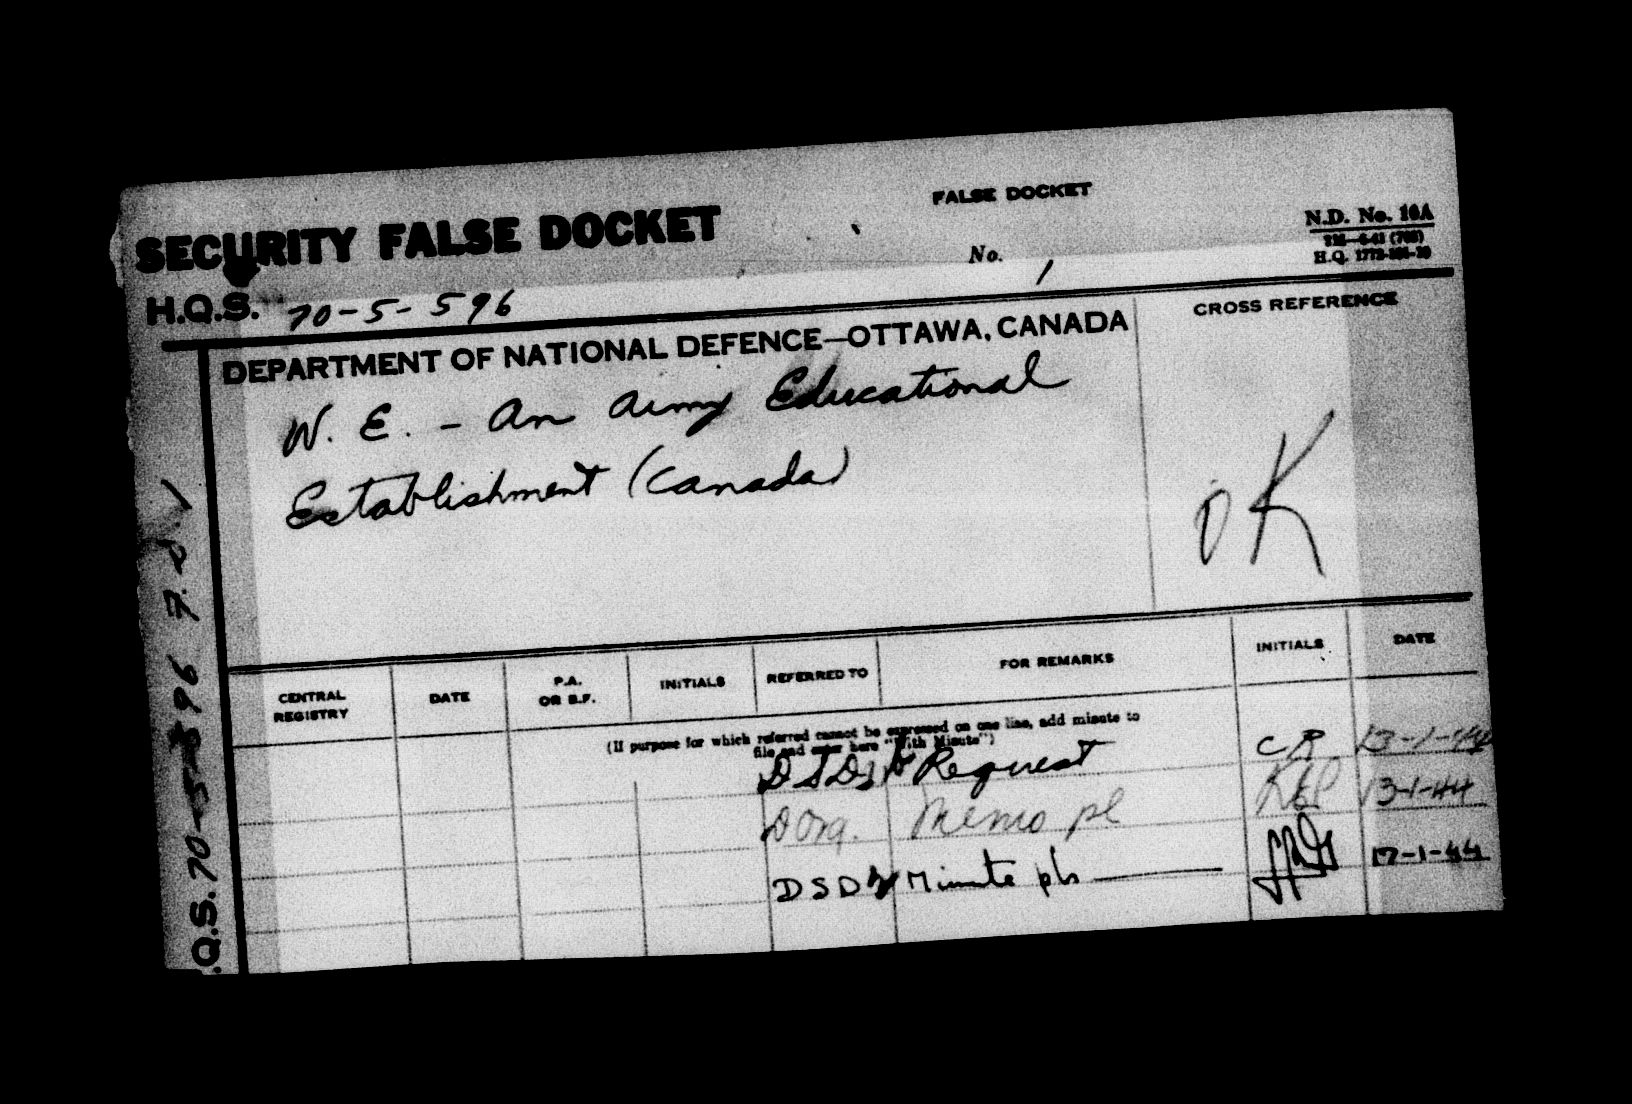 FALSE DOCKET
SECURITY FALSE DOCKET
N.D. No. 16A
No. 1
H.Q.S. 70-5-596
DEPARTMENT OF NATIONAL DEFENCE—OTTAWA, CANADA
CROSS REFERENCE
W. E. - An Army Educational
Establishment (Canada)
OK
CENTRAL REGISTRY DATE P.A. OR B.F. INITIALS REFERRED TO FOR REMARKS INITIALS DATE
(If purpose for which referred cannot be expressed on one line, add minute to
file and enter here "With Minute")
Request CR 13-1-44
D Org. Memo pl 13-1-44
DSD Minute pls 17-1-44
Q.S. 70-5-596 F.D. 1